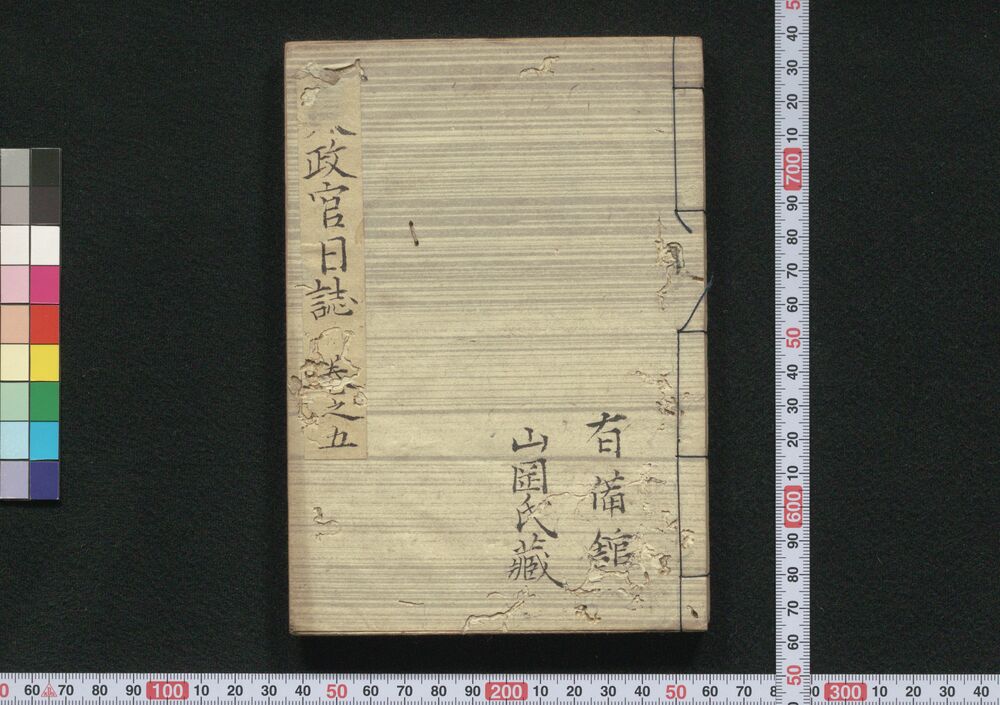 有備館
山岡氏藏
政官日誌 卷之五
40 30 20 10 700 90 80 70 60 50 40 30 20 10 600 90 80 70 60 50
60 70 80 90 100 10 20 30 40 50 60 70 80 90 200 10 20 30 40 50 60 70 300 10 20 30 40